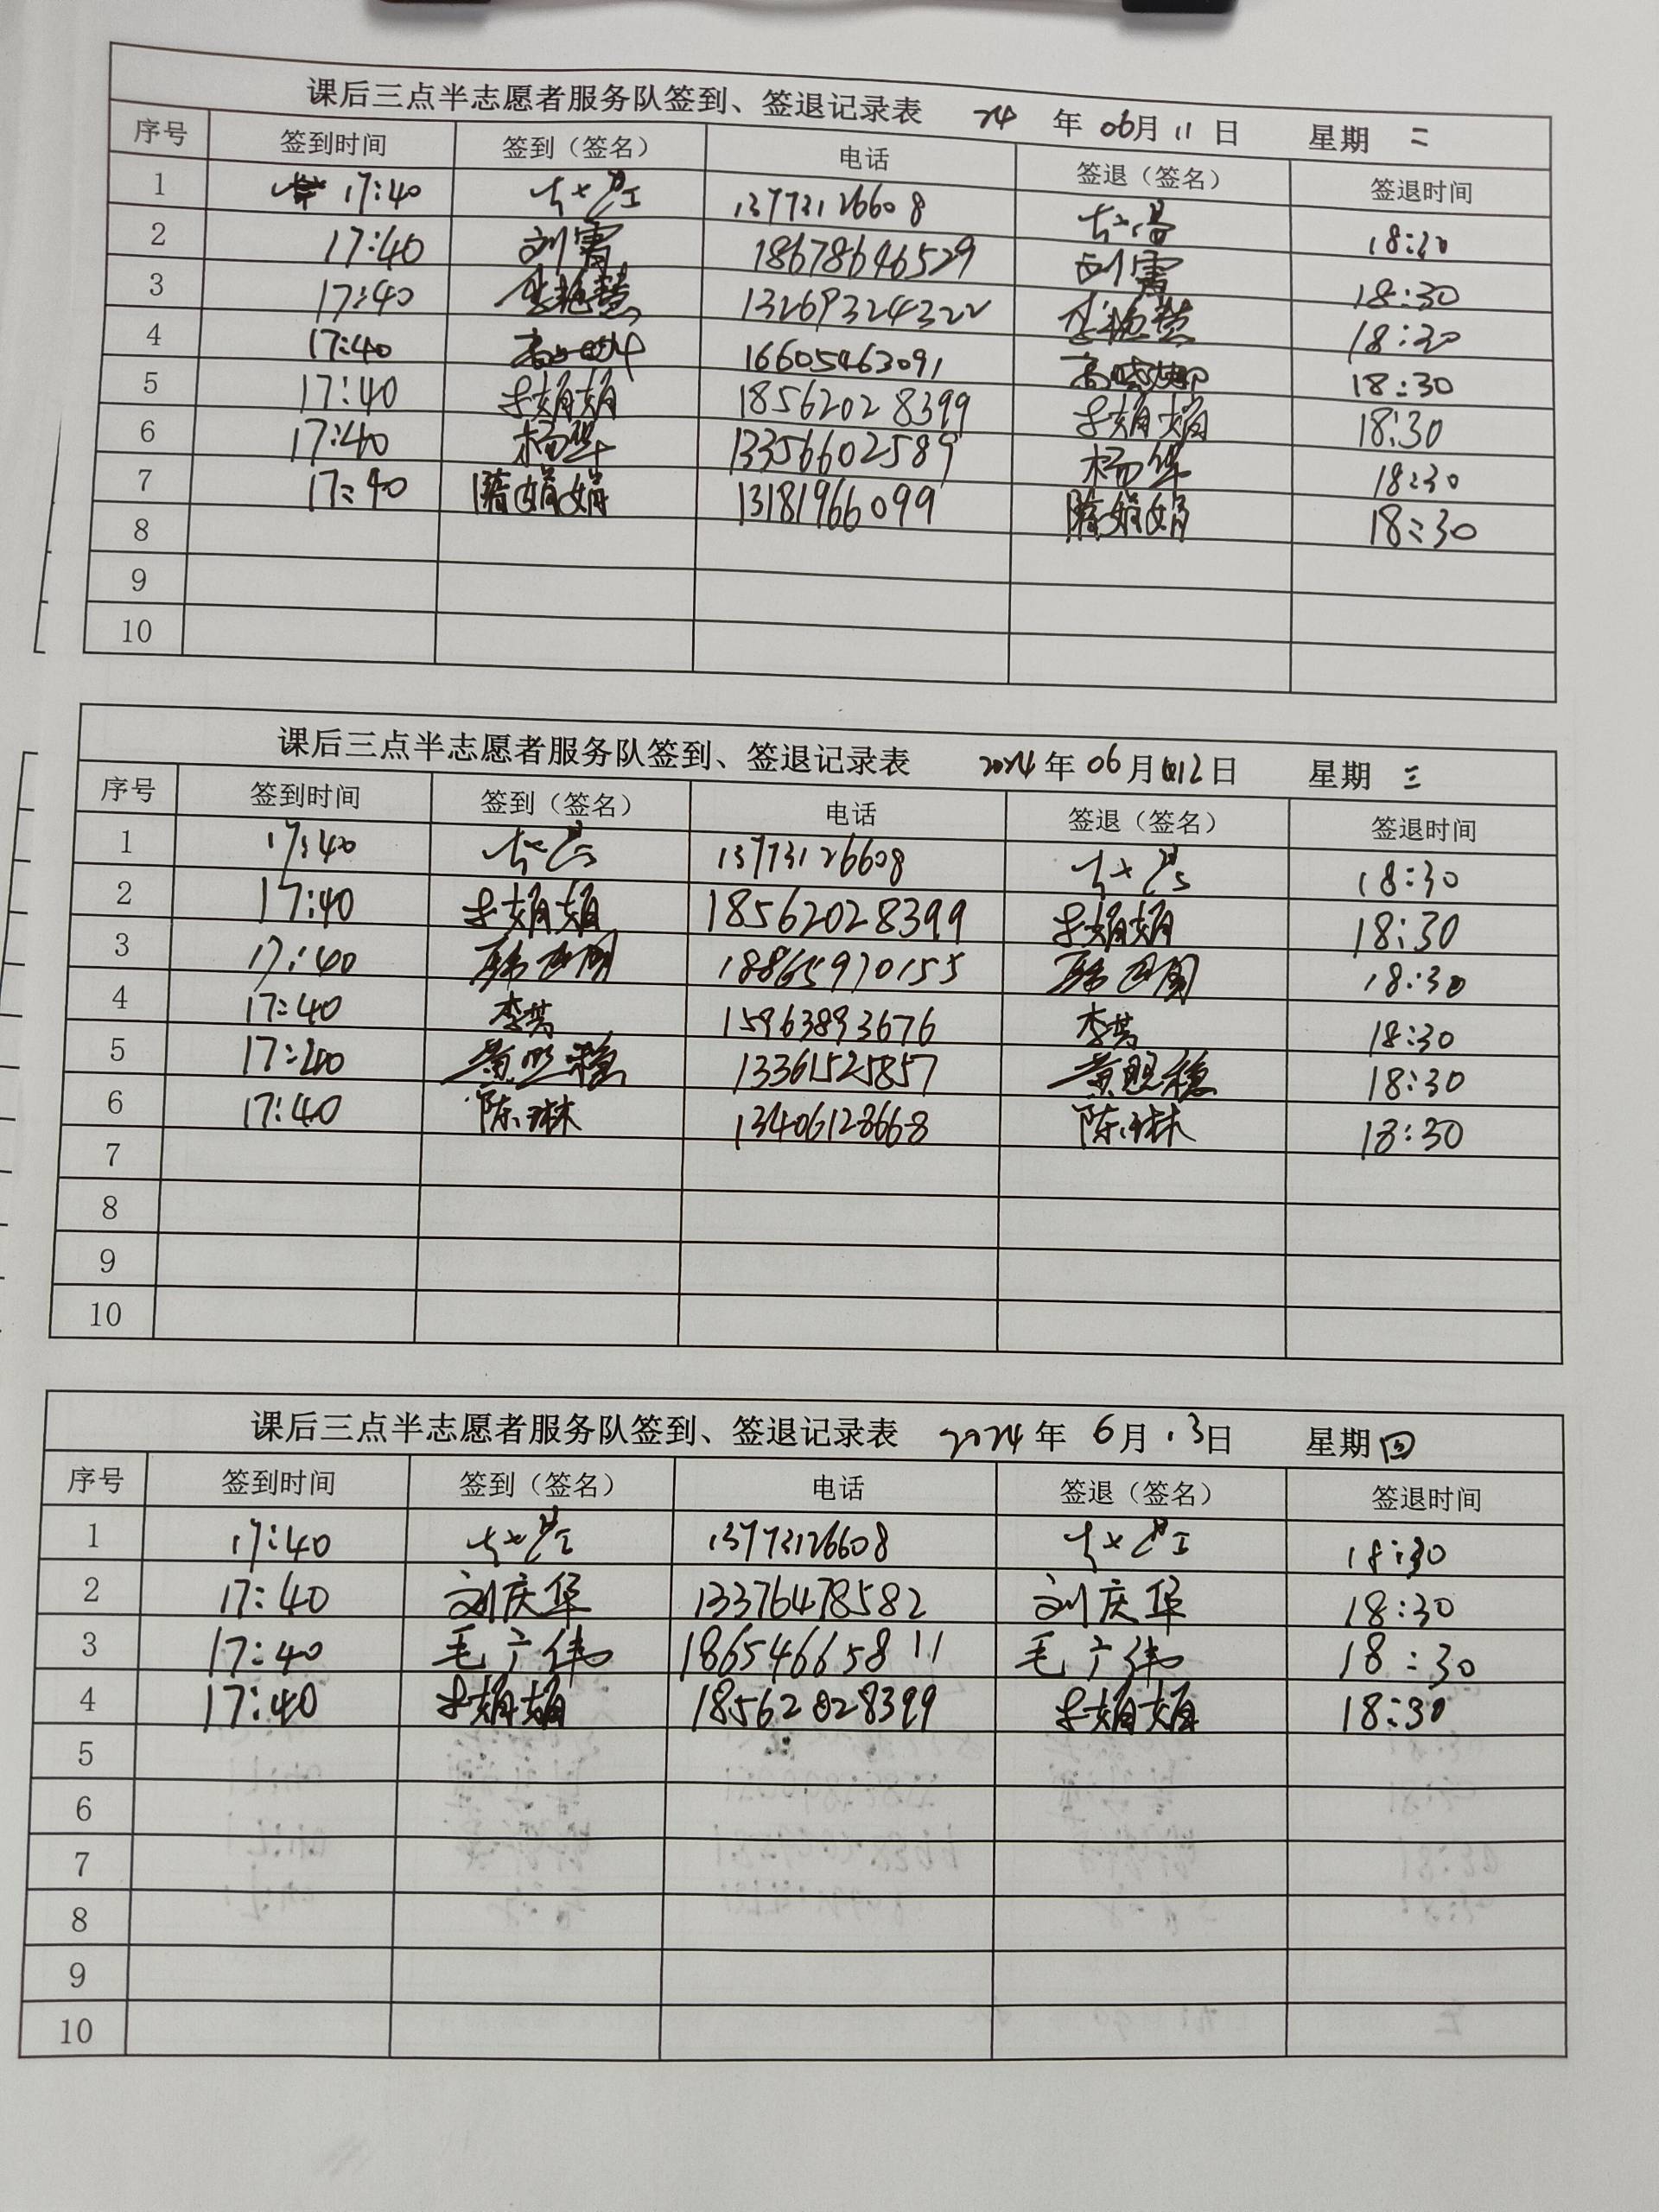 课后三点半志愿者服务队签到、签退记录表 24 年 06月 11 日 星期 二
序号 签到时间 签到（签名） 电话 签退（签名） 签退时间
1 17:40 13773126608
2 17:40 刘霄 18678646529 刘霄 18:30
3 17:40 李艳慧 13269324322 李艳慧 18:30
4 17:40 16605463091 高晓娜 18:30
5 17:40 娟娟 18562028399 娟娟 18:30
6 17:40 杨华 13356602589 杨华 18:30
7 17:40 隋娟娟 13181966099 隋娟娟 18:30
8
9
10
课后三点半志愿者服务队签到、签退记录表 2024 年 06 月 12日 星期 三
序号 签到时间 签到（签名） 电话 签退（签名） 签退时间
1 17:40 13773126608 18:30
2 17:40 娟娟 18562028399 娟娟 18:30
3 17:40 18865970155 18:30
4 17:40 李芸 15963893676 李芸 18:30
5 17:40 黄 13361525857 黄 18:30
6 17:40 陈琳 13406128668 陈琳 18:30
7
8
9
10
课后三点半志愿者服务队签到、签退记录表 2024 年 6 月 13日 星期四
序号 签到时间 签到（签名） 电话 签退（签名） 签退时间
1 17:40 13773126608 18:30
2 17:40 刘庆华 13376478582 刘庆华 18:30
3 17:40 毛广伟 18654665811 毛广伟 18:30
4 17:40 娟娟 18562028399 娟娟 18:30
5
6
7
8
9
10